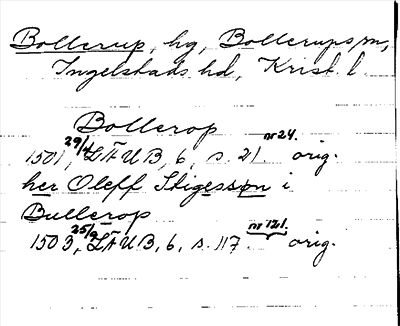 Bollerup, hg, Bollerups sn,
Ingelstads hd, Krist. l.
Bollerop
1501 29/4, LÄUB, 6, s. 21. nr 24. orig.
her Oleff Stigesson i
Bullerop
1503 25/9, LÄUB, 6, s. 117 nr 121. orig.